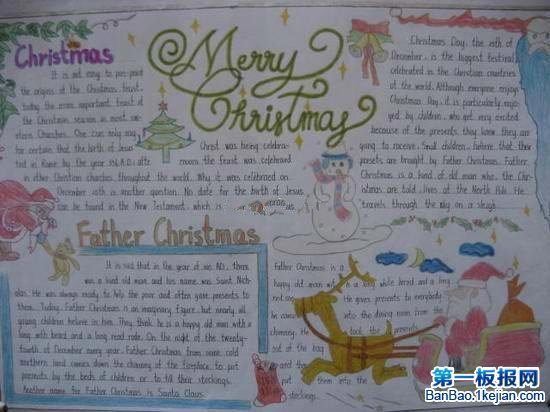 Merry
Christmas
Christmas
It is not easy to pin-point
the origins of the Christmas feast,
today the most important feast of
the Christmas season in most we-
stern Churches. One can only say
for certain that the birth of Jesus
in Rome by the year
in other Christian churches throughout the world. Why it was celebrated on
December 25th is another question. No date for the birth of Jesus
can be found in the New Testament, which is
Christ was being celebra-
the feast was celebrated
Christmas Day, the 25th of
December, is the biggest festival
celebrated in the Christian countries
of the world. Although everyone enjoys
Christmas Day, it is particularly enjo-
yed by children, who get very excited
because of the presents they know they are
going to receive. Small children believe that their
presents are brought by Father Christmas. Father
Christmas is a kind of old man who, the Chi-
ldren are told, lives at the North Pole. He
travels through the sky on a sleigh
Father Christmas
It is said that in the year of 300 A.D., there
was a kind old man and his name was Saint. Nich-
olas. He was always ready to help the poor and often gave presents to
them. Today, Father Christmas is an imaginary figure, but nearly all
young children believe in him. They think he is a happy old man with a
long with beard and a long read robe. On the night of the twenty-
fourth of December every year. Father Christmas from some cold
northern land comes down the chimney of the fireplace to put
presents by the beds of children or to fill their stockings.
Another name for Father Christmas is Santa Claus.
Father Christmas is a
happy old man with a long white beard and a long
red He gives presents to everybody
he comes into the dining room from the
chimney. He took the presents
out of the bag
and then put
them into the
stockings.
第一板报网
BanBao.1kejian.com